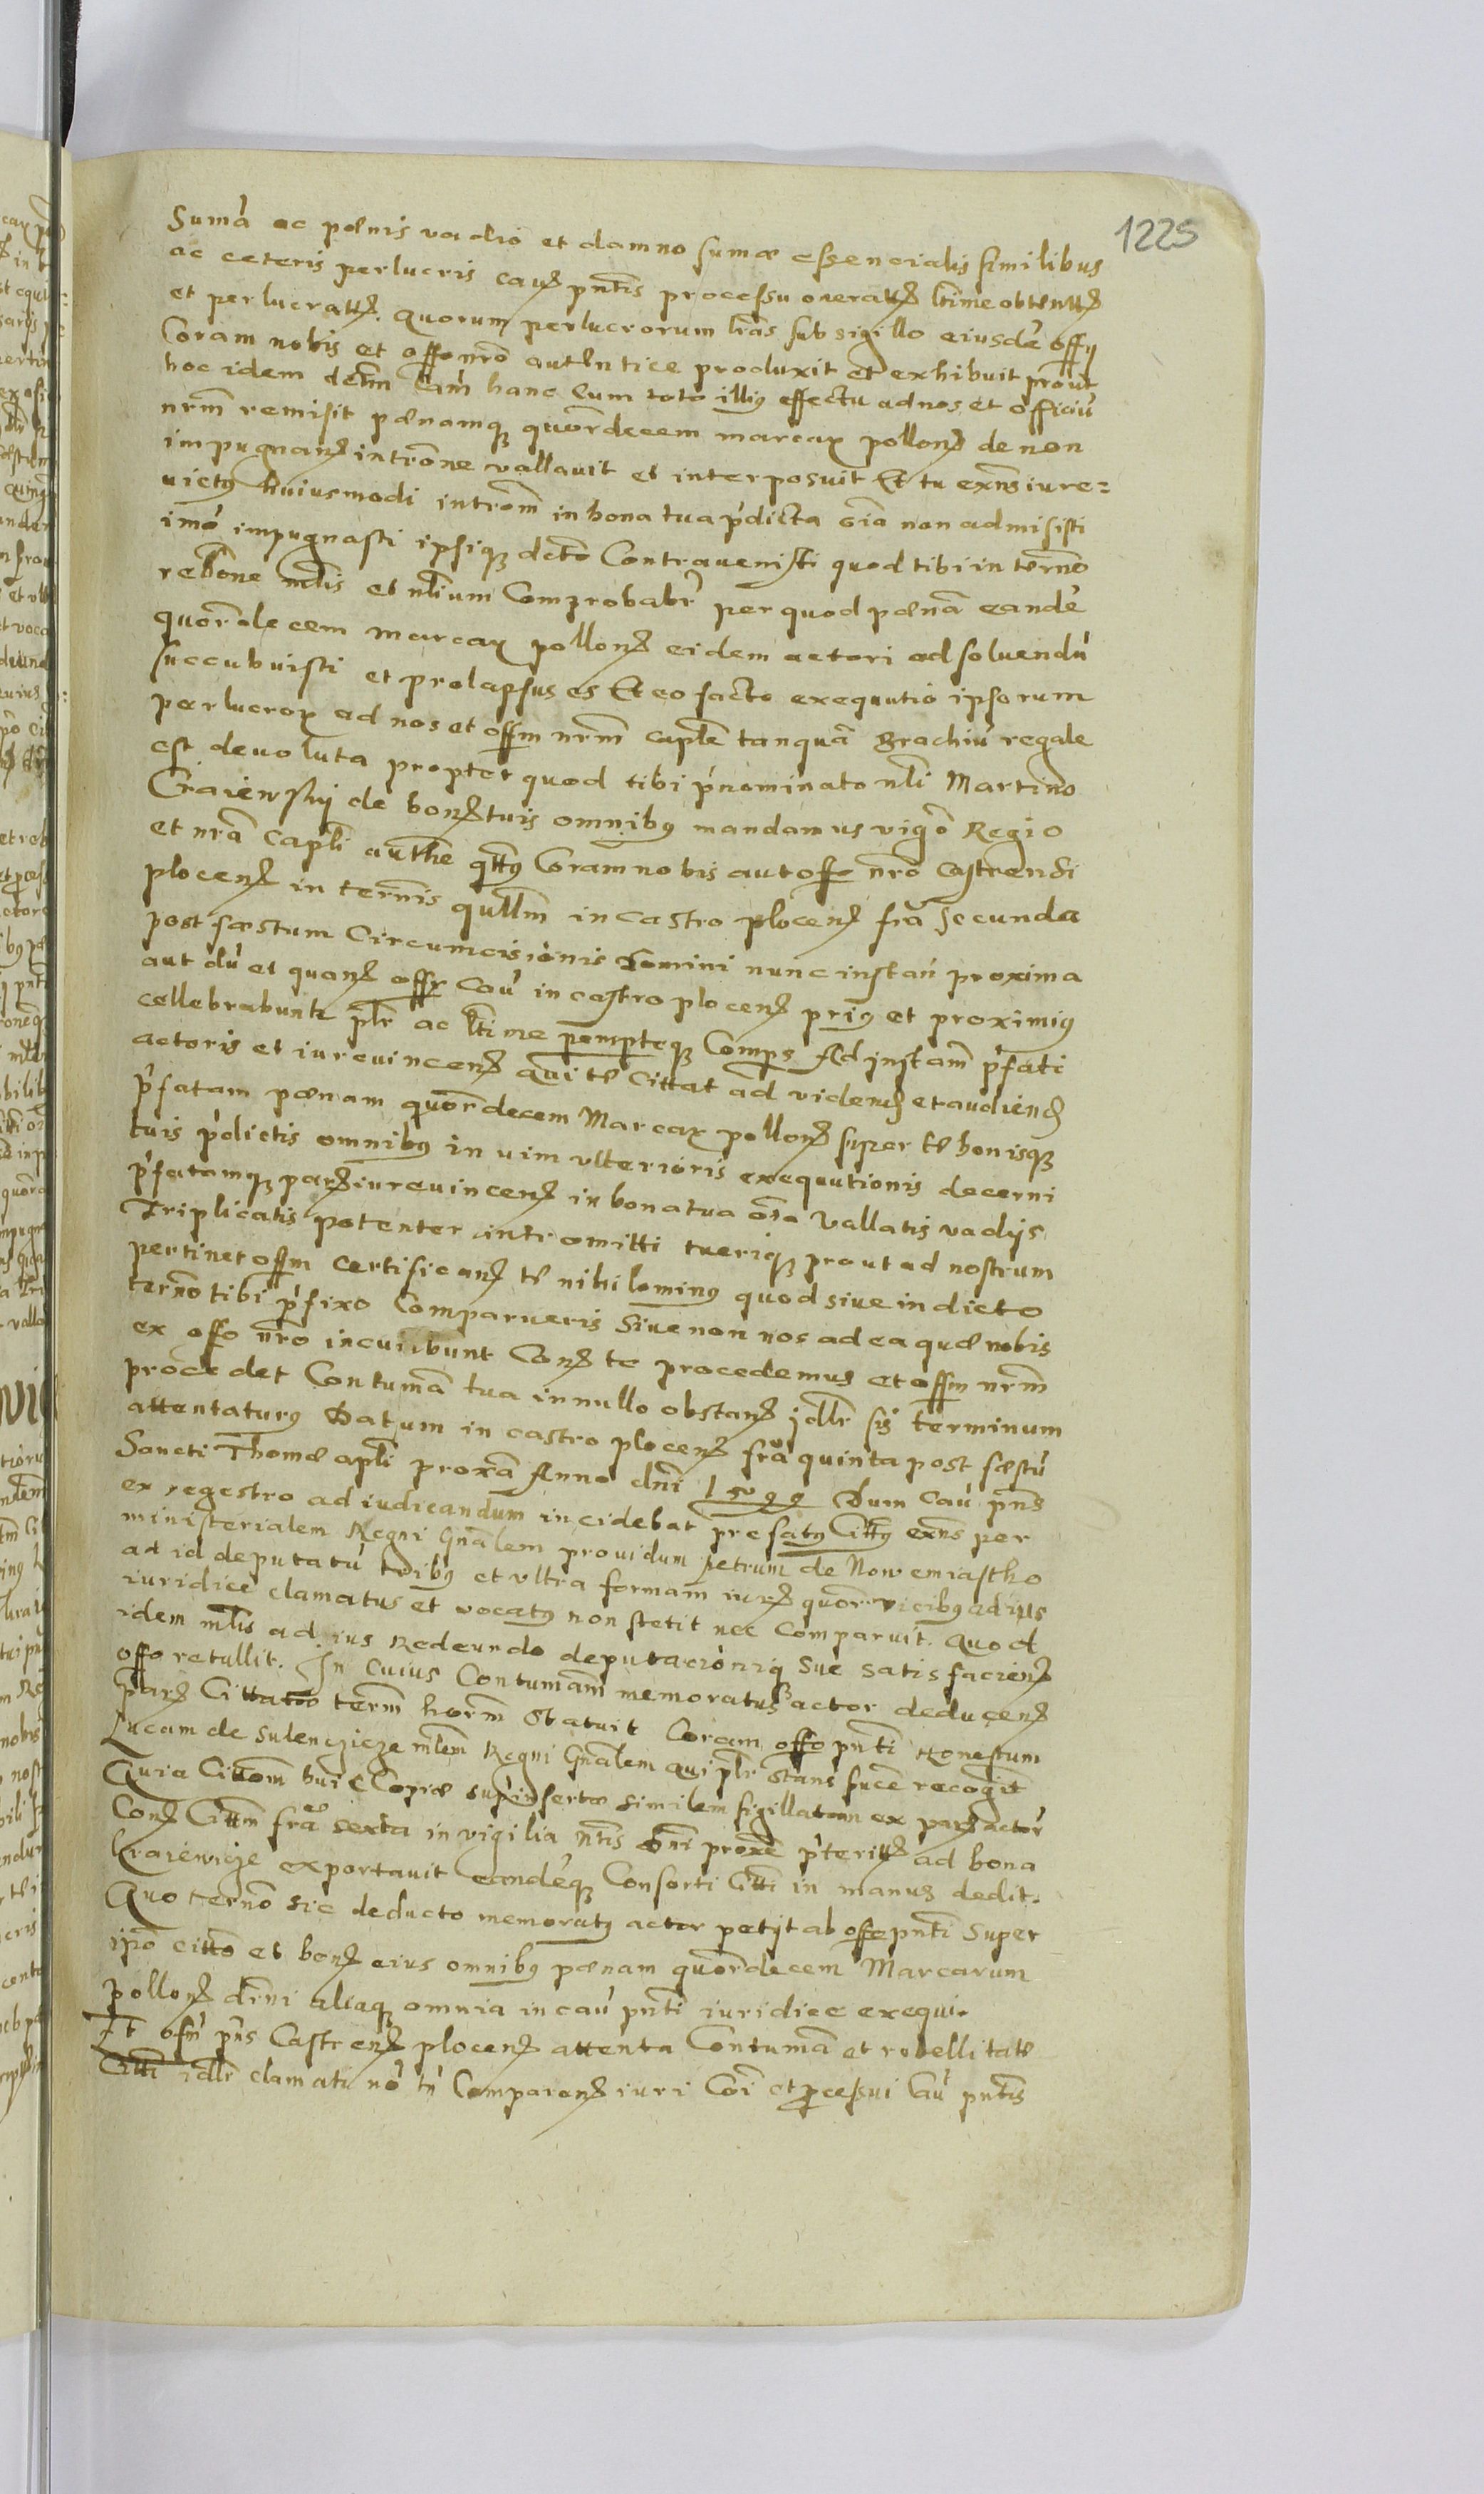 1225
Sumá ac pænis vadio et damno sumæ essencialis similibus
ac ceteris perlucris caus pntis processu oneratis ltime obtentis
et perlucratis. Quorum perlucrorum lras sub sigillo eiusdé offy
Coram nobis et offo nro autentice produxit et exhibuit prout
hoc idem dctm cam hanc Cum toto illius effectu ad nos et officiú
nrm remisit pænamq quordecem marcar pollon de non
impugnan intrōne vallavit et interposuit Et tu exns iure=
uictus huiusmodi introm in bona tua pdicta oia non admisisti
imo impugnasti ipsique dcto Contravenisti quod tibi in termo
relone mlis et nlium Comprobabr per quod pænā eandé
quordecem marcar pollon eidem actori ad soluendú
succubuisti et prolapsus es Et eo facto exequutio ipsorum
perlucror ad nos et offm nrm caplē tanquā Brachiú regale
est devoluta propter quod tibi pnominato nli Martino
Craiewsky de bon tuis omnibus mandamus vigō Regio
et nrā Capli authē qtus Coram nobis aut offo nro Castrensi
plocen in terminis qullm in castro plocen fra secunda
post fæstum Circumcisionis Domini nunc instan proxima
aut dú et quan offr Caú in castro plocen prius et proximius
cellebrabuntr plr ac ltime pemptoqz Compas Ad instam pfati
actoris et iurevincen qui te Cittat ad viden et audien
pfatam pænam quordecem Marcar pollon super te bonisqz
tuis pdictis omnibus in vim ulterioris exequutionis decerni
pfatamqz par iurevincen in bona tua oia vallatis vadys
Triplicatis potenter intromitti tueriqz prout ad nostrum
pertinet offm certifican te nihilominus quod sive in dicto
termo tibi pfixo Comparueris Sive non nos ad ea quæ nobis
ex offo nro incumbunt Con te procedemus et offm nrm
procedet Contumā tua in nullo obstan jdlr sis terminum
attentaturus Datum in castro plocen frā quinta post fæstú
Sancti Thomæ apli proxā Anno dni 1599 Dum Caú pns
ex regestro ad iudicandum incidebat prefatus Cittus exns per
ministerialem Regni Gnālem providum petrum de Nowemiastho
ad id deputatú tribus et ultra formam iuris quor vicibus ad ius
iuridice clamatus et vocatus non stetit nec Comparuit. Quod
idem mlis ad ius Redeundo deputacioniq Sue satisfacien
offo retullit. In Cuius Contumam memoratus actor deducen
par Cittatæ term horm Statuit Coram offo pnti Honestum
Lucam de Sulenczicze mlem Regni Gnālem qui plr Stans sucē recognit
Quia Cittōm huic Copiæ supinsertæ similem sigillatam ex par actor
Con Cittm frā sexta in vigilia ntis Dni proxē pterit ad bona
Kraiewicze exportavit eandéqz Consorti Citti in manus dedit.
Quo termo sic deducto memoratus actor petyt ab offo pnti super
ipō citto et bon eius omnibus pænam quordecem Marcarum
pollon dcrni aliaqz omnia in caú pnti iuridice exequi.
Et offm pns Castren plocen attenta Contumā et rebellitatē
Citti idlr clamati nó tn Comparen iuri Coi et processui Caú pntis